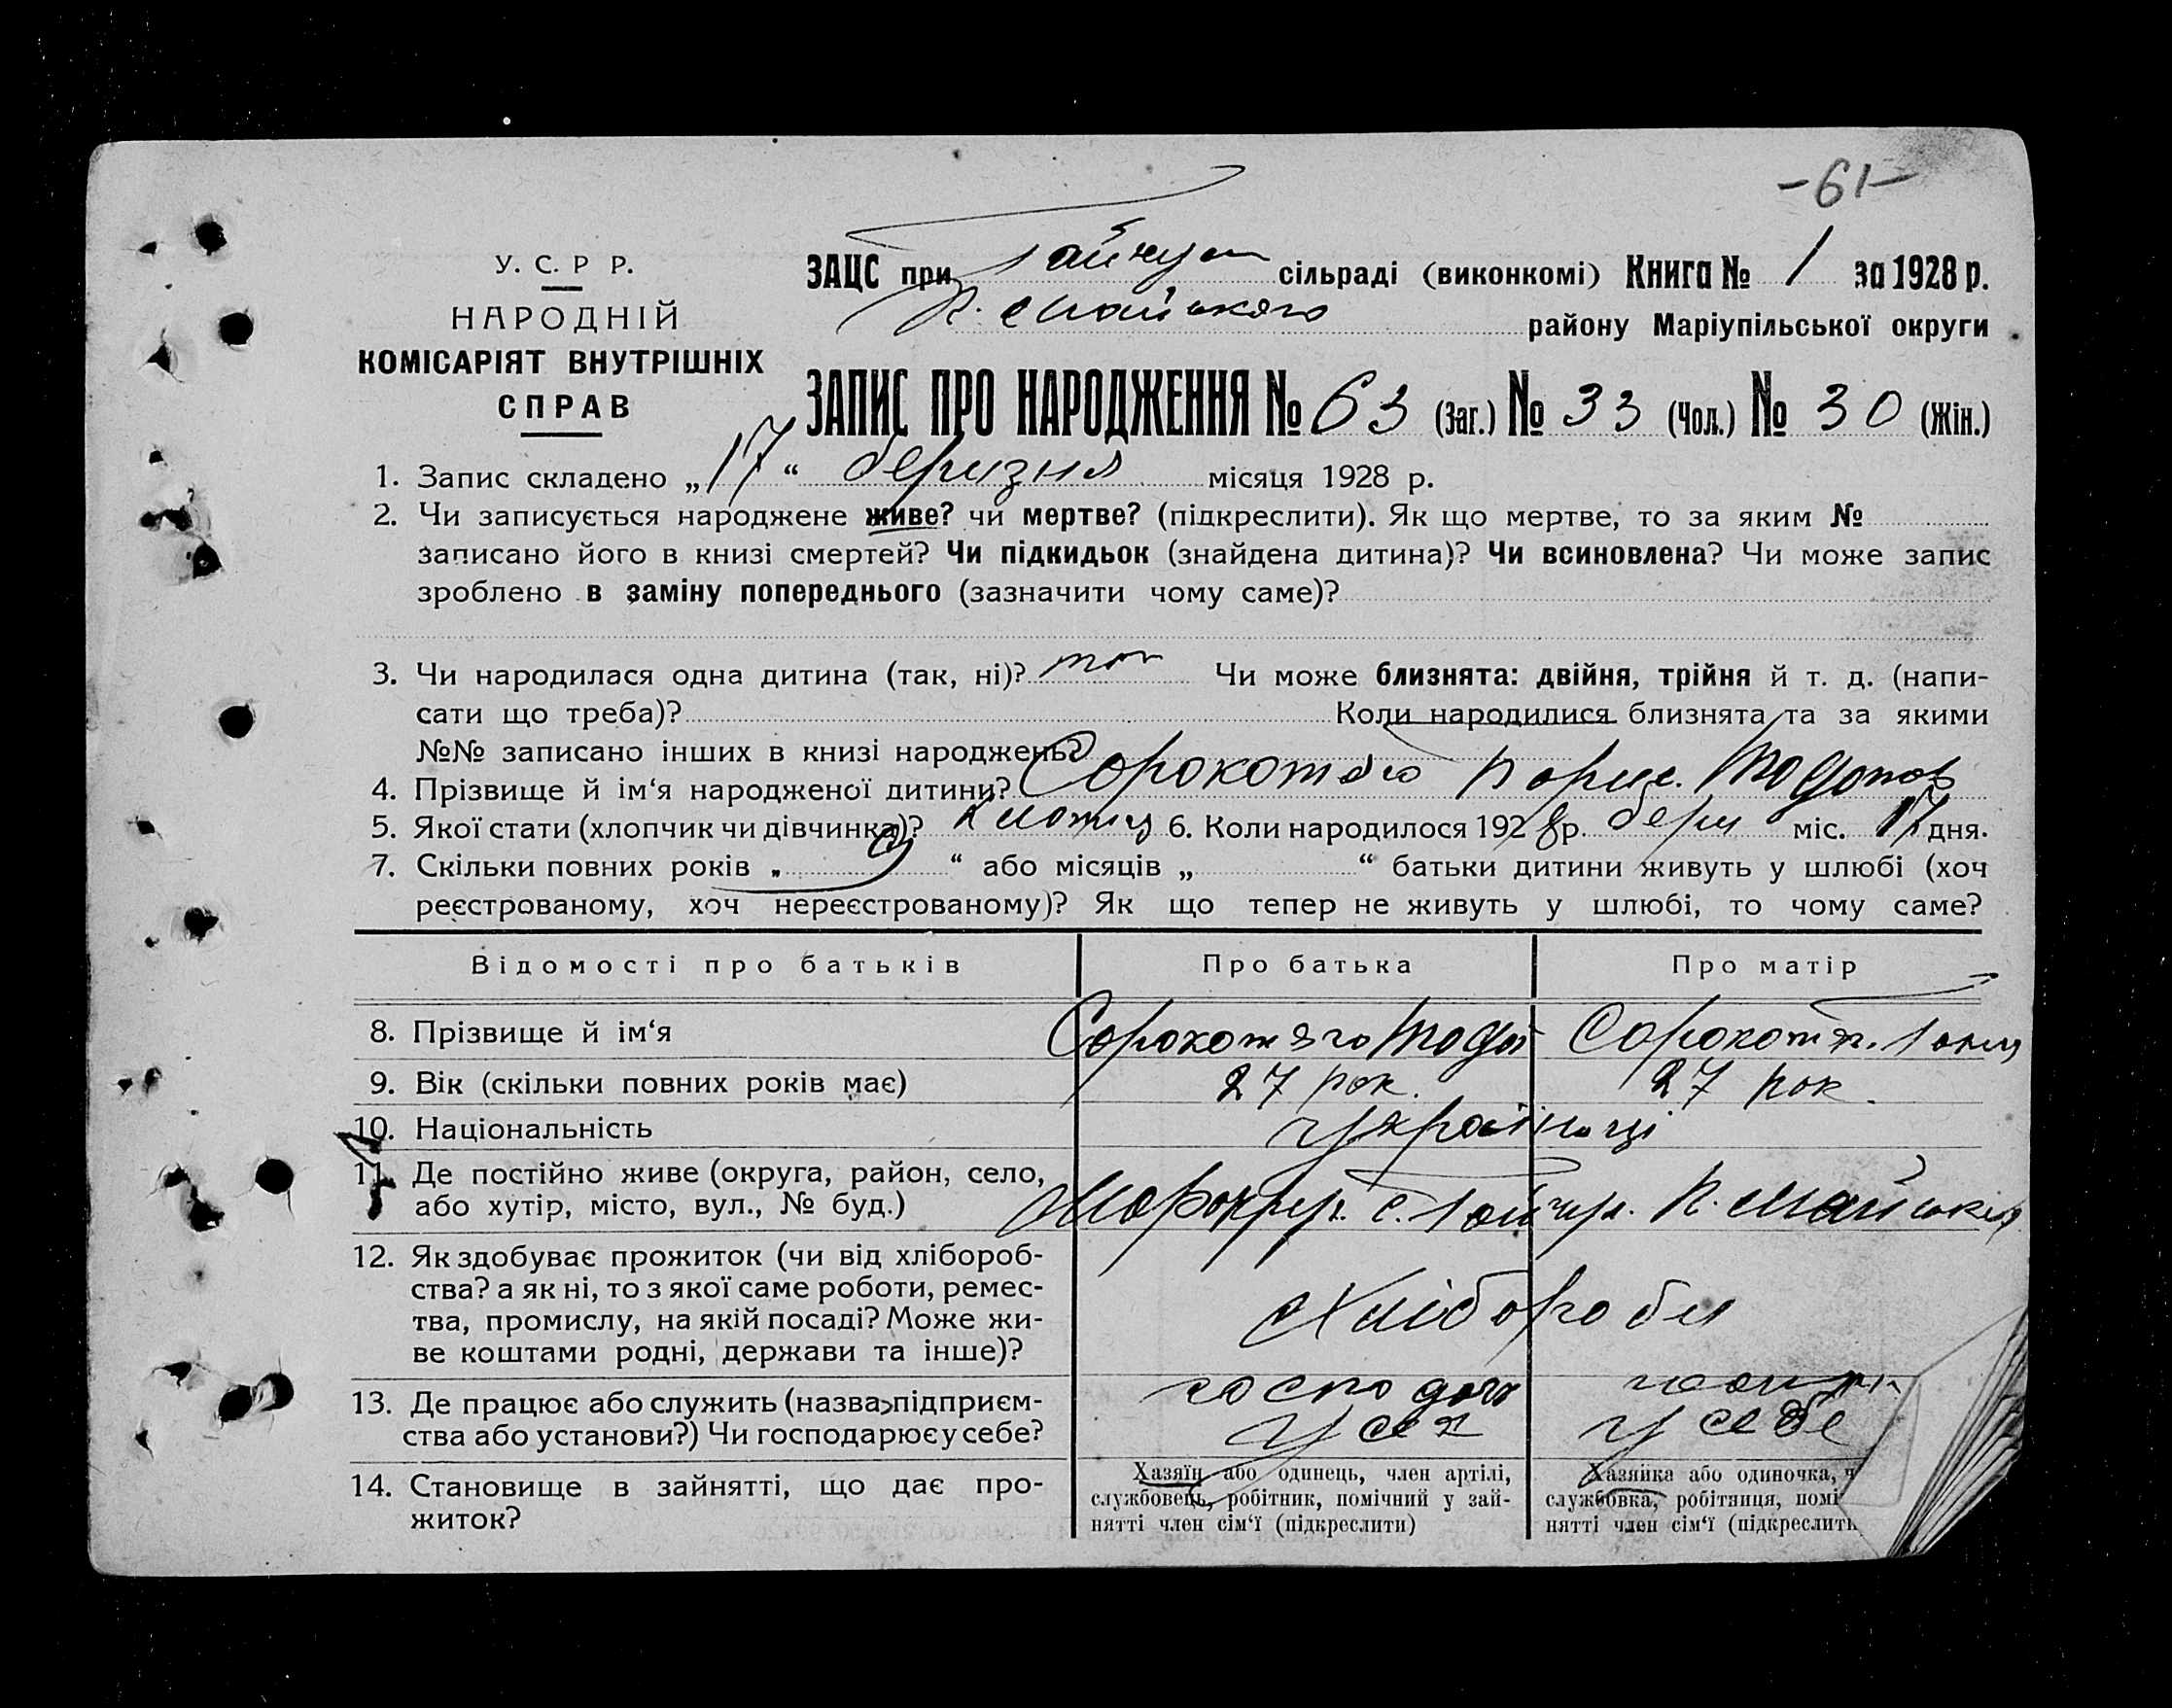 -61-
У. С. Р Р.
НАРОДНІЙ
КОМІСАРІЯТ ВНУТРІШНІХ
СПРАВ
ЗАЦС при сільраді (виконкомі) Книга № 1 за 1928 р.
району Маріупільської округи
ЗАПИС ПРО НАРОДЖЕННЯ № 63 (Заг.) № 33 (Чол.) № 30 (Жін.)
1. Запис складено „17“ березня місяця 1928 р.
2. Чи записується народжене живе? чи мертве? (підкреслити). Як що мертве, то за яким №
записано його в книзі смертей? Чи підкидьок (знайдена дитина)? Чи всиновлена? Чи може запис
зроблено в заміну попереднього (зазначити чому саме)?
3. Чи народилася одна дитина (так, ні)? так Чи може близнята: двійня, трійня й т. д. (напи-
сати що треба)? Коли народилися близнята та за якими
№№ записано інших в книзі народжень?
4. Прізвище й ім‘я народженої дитини? Сорокотяга
5. Якої стати (хлопчик чи дівчинка)? 6. Коли народилось 1928 р. бере міс. 17 дня.
7. Скільки повних років „ 9 “ або місяців „ “ батьки дитини живуть у шлюбі (хоч
реєстрованому, хоч нереєстрованому)? Як що тепер не живуть у шлюбі, то чому саме?
Відомості про батьків Про батька Про матір
8. Прізвище й ім‘я Сорокотяга Сорокотяг.
9. Вік (скільки повних років має) 27 рок. 27 рок.
10. Національність українці
11. Де постійно живе (округа, район, село,
або хутір, місто, вул., № буд.)
12. Як здобуває прожиток (чи від хлібороб-
ства? а як ні, то з якої саме роботи, ремес-
тва, промислу, на якій посаді? Може жи-
ве коштами родні, держави та інше)?
Хлібороби
13. Де працює або служить (назва підприєм-
ства або установи?) Чи господарює у себе?
у себе
14. Становище в зайнятті, що дає про-
житок?
Хазяїн або одинець, член артілі,
службовець, робітник, помічний у зай-
нятті член сім‘ї (підкреслити)
Хазяйка або одиночка,
службовка, робітниця, помі
нятті член сім‘ї (підкреслити